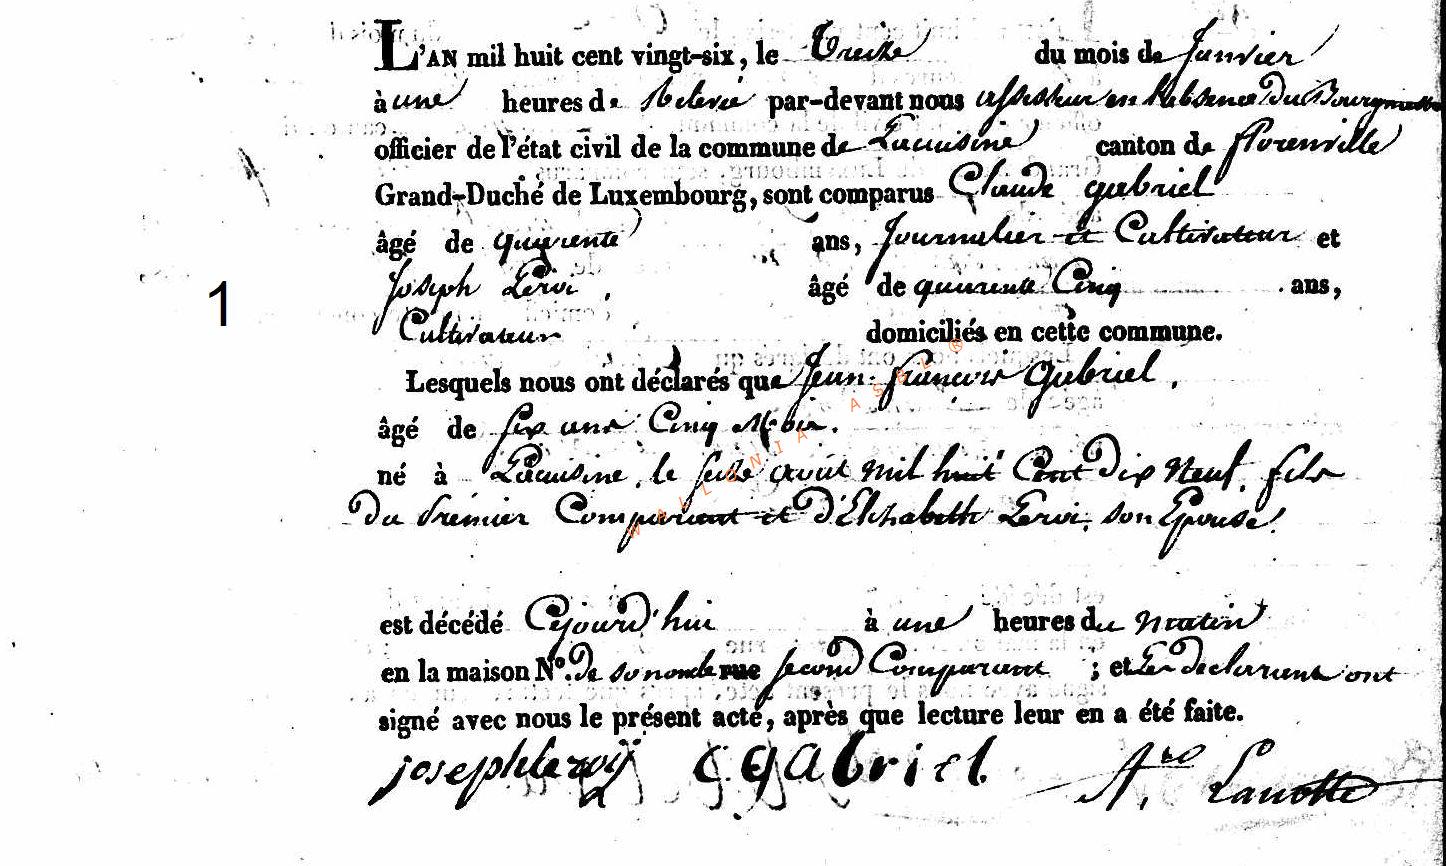 L'AN mil huit cent vingt-six, le Treize du mois de Janvier
à une heures de Relevée par-devant nous assesseur en l'absence Du Bourgmestre
officier de l'état civil de la commune de Lacuisine canton de florenville
Grand-Duché de Luxembourg, sont comparus Claude gabriel
âgé de quarente ans, Journalier et Cultivateur et
Joseph Leroi, âgé de quarente Cinq ans,
1
Cultivateur domiciliés en cette commune.
Lesquels nous ont déclarés que Jean françois Gabriel,
âgé de six ans Cinq Mois.
né à Lacuisine, le seize avout mil huit Cent Dix Neuf, fils
Du Premier Comparant et D'Elisabeth Leroi, son Epouse.
est décédé Cejourd'hui à une heures du matin
en la maison N°. De son oncle rue second Comparant ; et Les declarants ont
signé avec nous le présent acte, après que lecture leur en a été faite.
joseph leroÿ C gabriel A, Lanotte
WALLONIA ASBL ®